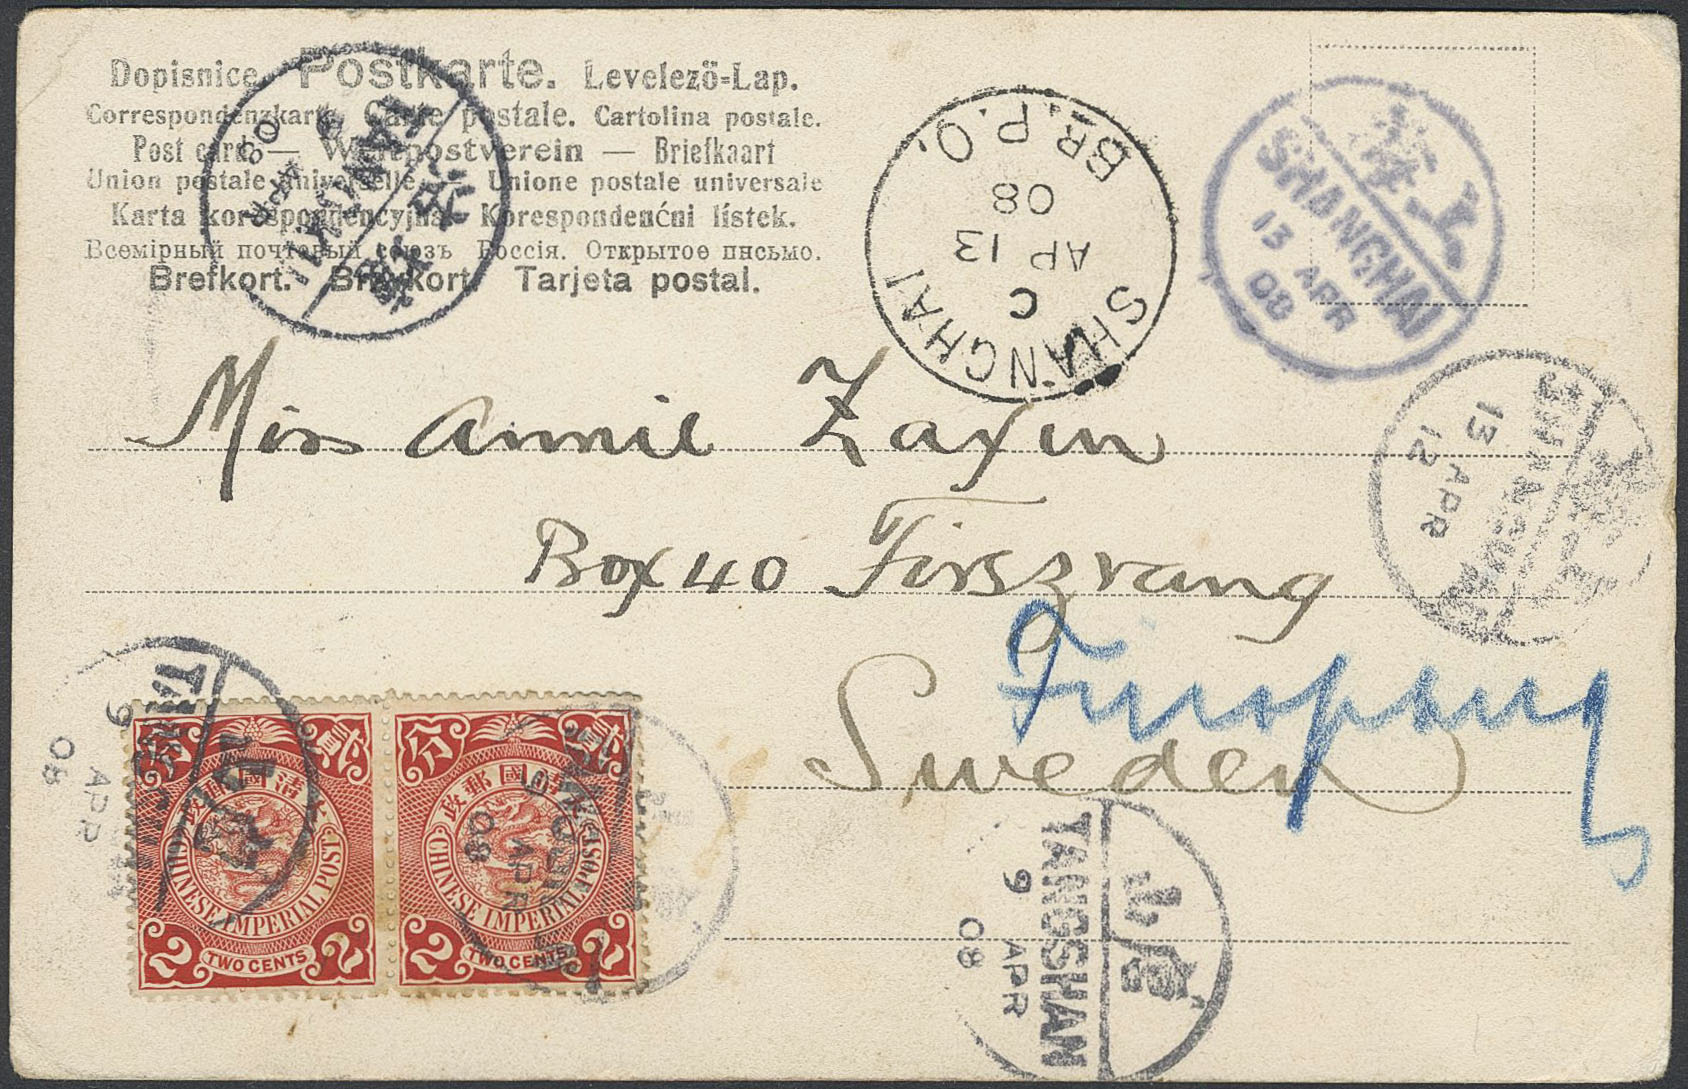 Dopisnice Postkarte. Levelező-Lap.
Correspondenzkarte Carte postale. Cartolina postale.
Post card — Weltpostverein — Briefkaart
Union postale universelle. Unione postale universale
Karta korespondencyjna Korespondenćni lístek.
Всемірный почтовый союзъ Россія. Открытое письмо.
Brefkort. Brevkort. Tarjeta postal.
9 APR 08
SHANGHAI BR.P.O.
C
AP 13
08
上海
SHANGHAI
13 APR
08
SHANGHAI
13 APR
12
Miss Annie Zaxin
Box 40
Sweden
Finspong
TANGSHAN
9 APR
08
大清國郵政
CHINESE IMPERIAL POST
2 TWO CENTS 2
大清國郵政
CHINESE IMPERIAL POST
2 TWO CENTS 2
APR
08
唐山
TANGSHAN
9 APR
08